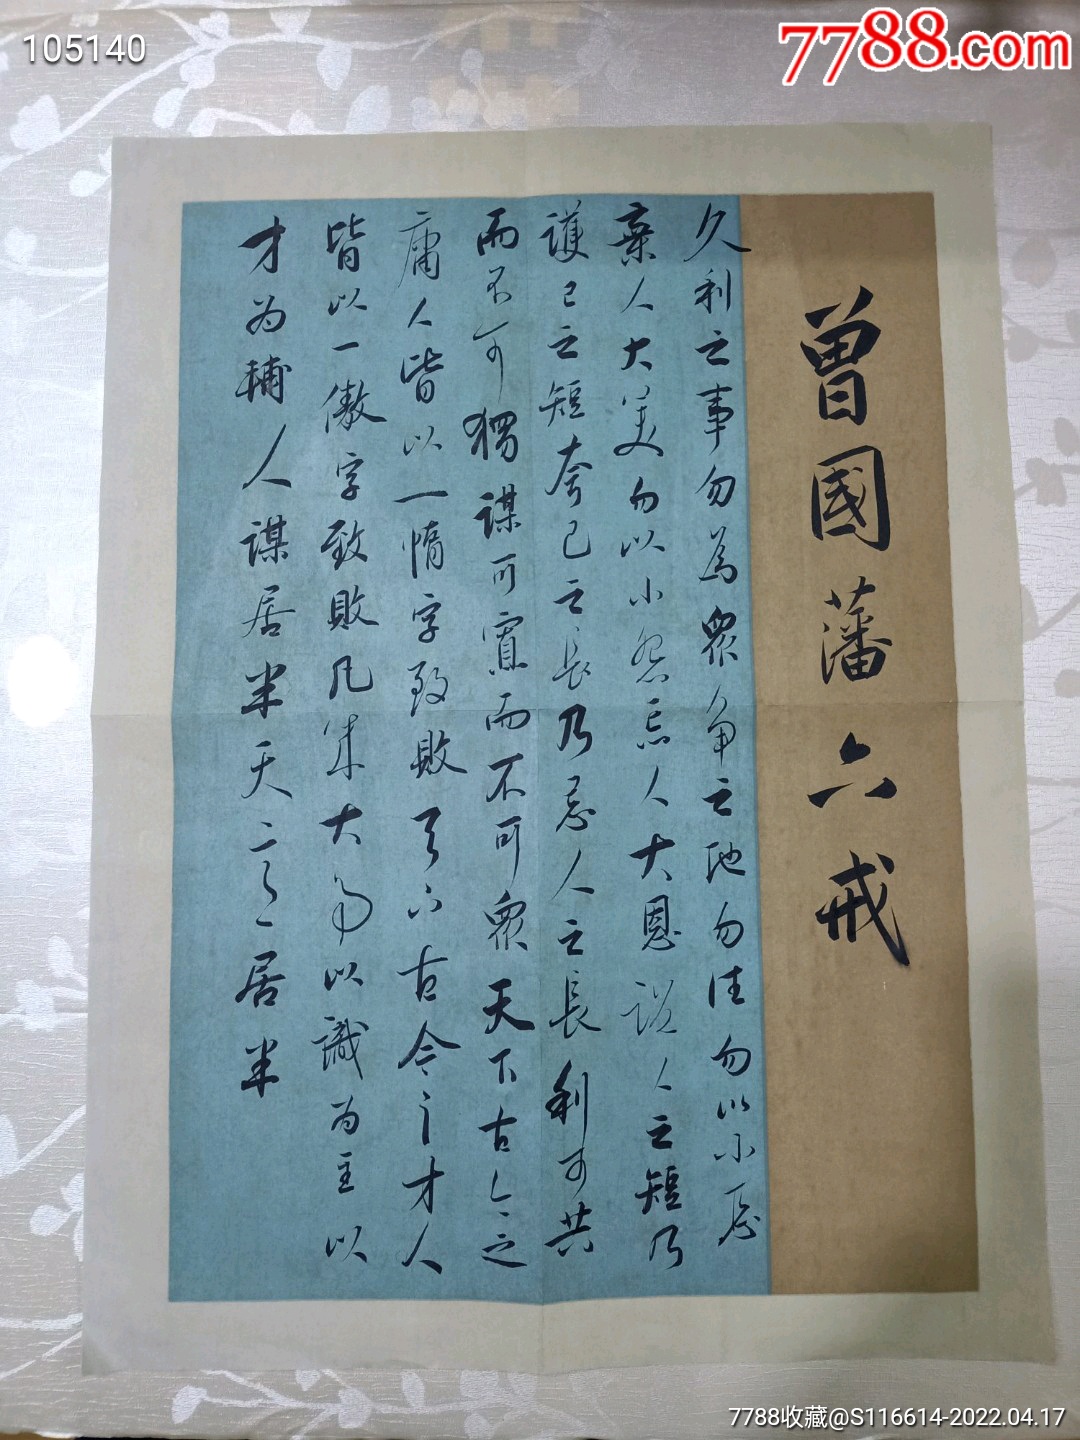 105140
7788.com
曾國藩六戒
久利之事勿為衆争之地勿往勿以小惡
棄人大美勿以小怨忘人大恩説人之短乃
護己之短夸己之長乃忌人之長利可共
而不可獨謀可寡而不可衆天下古今之
庸人皆以一惰字致敗天下古今之才人
皆以一傲字致敗凡成大事以識為主以
才为輔人謀居半天意居半
7788收藏@S116614-2022.04.17